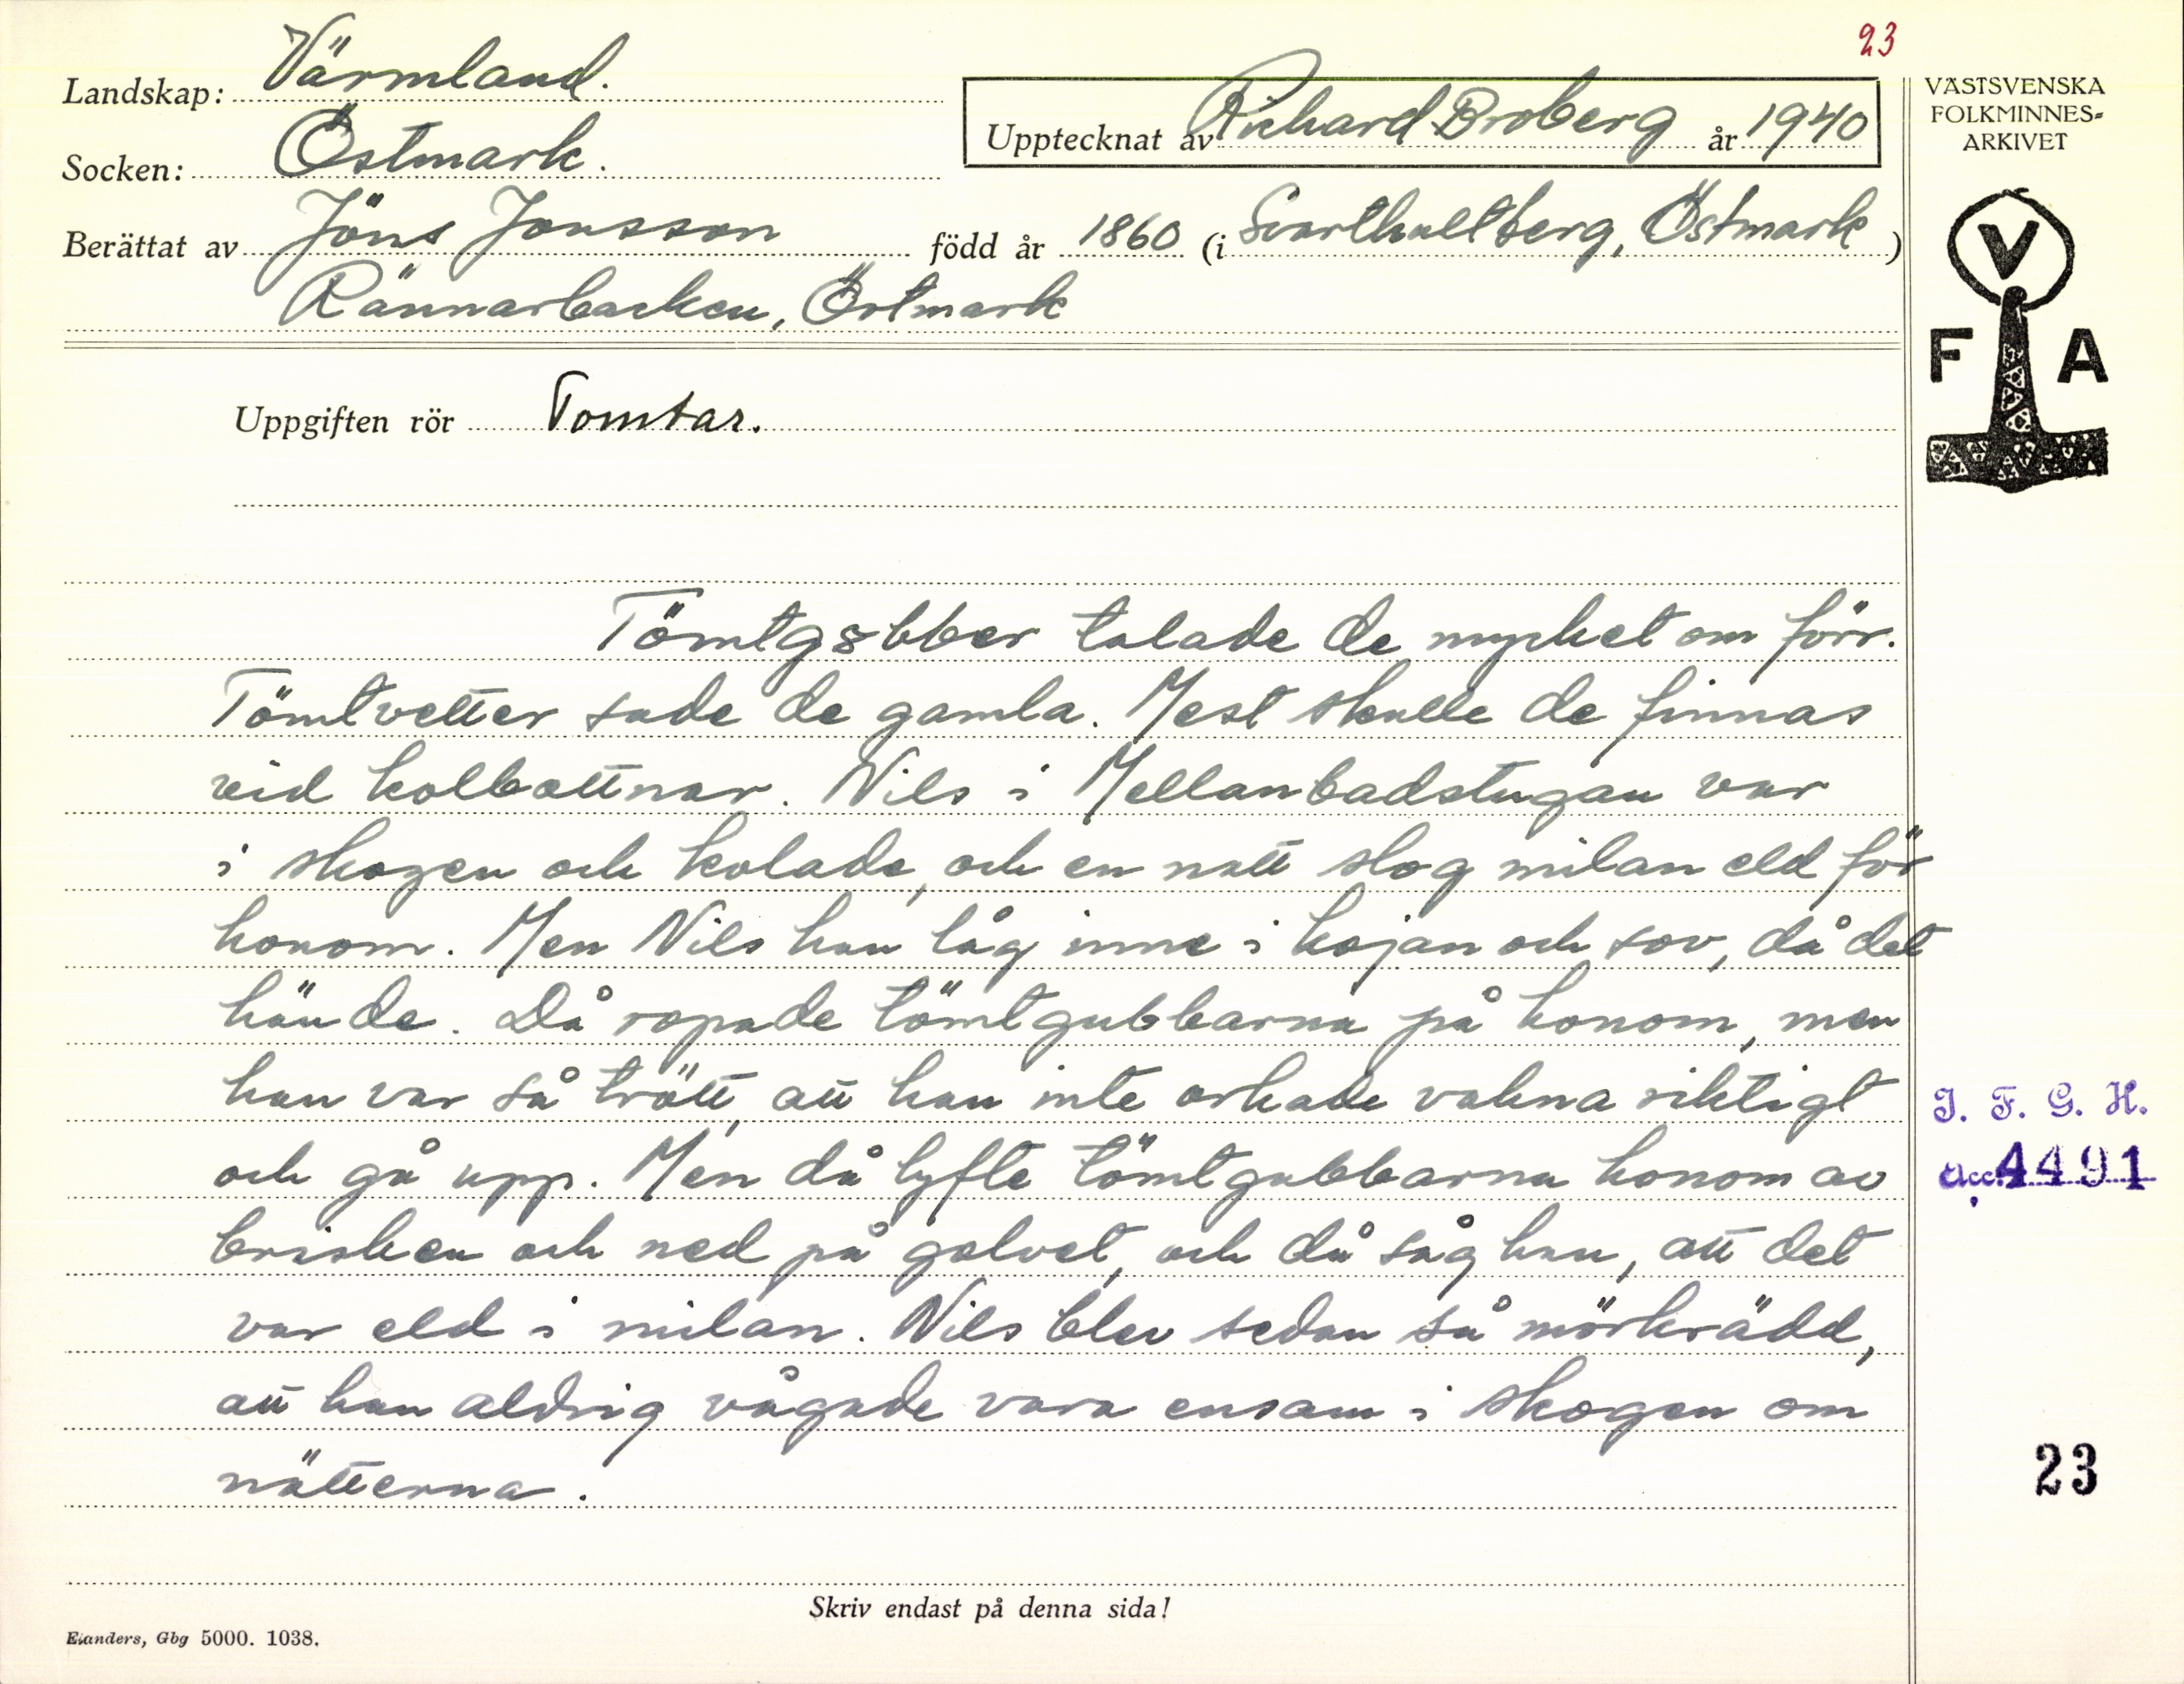 23
Landskap: Värmland.
Upptecknat av Richard Broberg år 1940
Socken: Östmark.
Berättat av Jöns Jonsson född år 1860 (i Svarthultberg, Östmark)
Rännarbacken, Östmark
VÄSTSVENSKA
FOLKMINNES-
ARKIVET
V
F A
Uppgiften rör Tomtar.
Tömtgubber talade de mycket om förr.
Tömtvetter sade de gamla. Mest skulle de finnas
vid kolbottnar. Nils i Mellanbadstugan var
i skogen och kolade, och en natt slog milan eld för
honom. Men Nils han låg inne i kojan och sov, då det
hände. Då ropade tömtgubbarna på honom, men
han var så trött, att han inte orkade vakna riktigt
och gå upp. Men då lyfte tömtgubbarna honom av
brisken och ned på golvet, och då såg han, att det
var eld i milan. Nils blev sedan så mörkrädd,
att han aldrig vågade vara ensam i skogen om
nätterna.
I. F. G. H.
Acc. 4491
23
Skriv endast på denna sida!
Elanders, Gbg 5000. 1038.